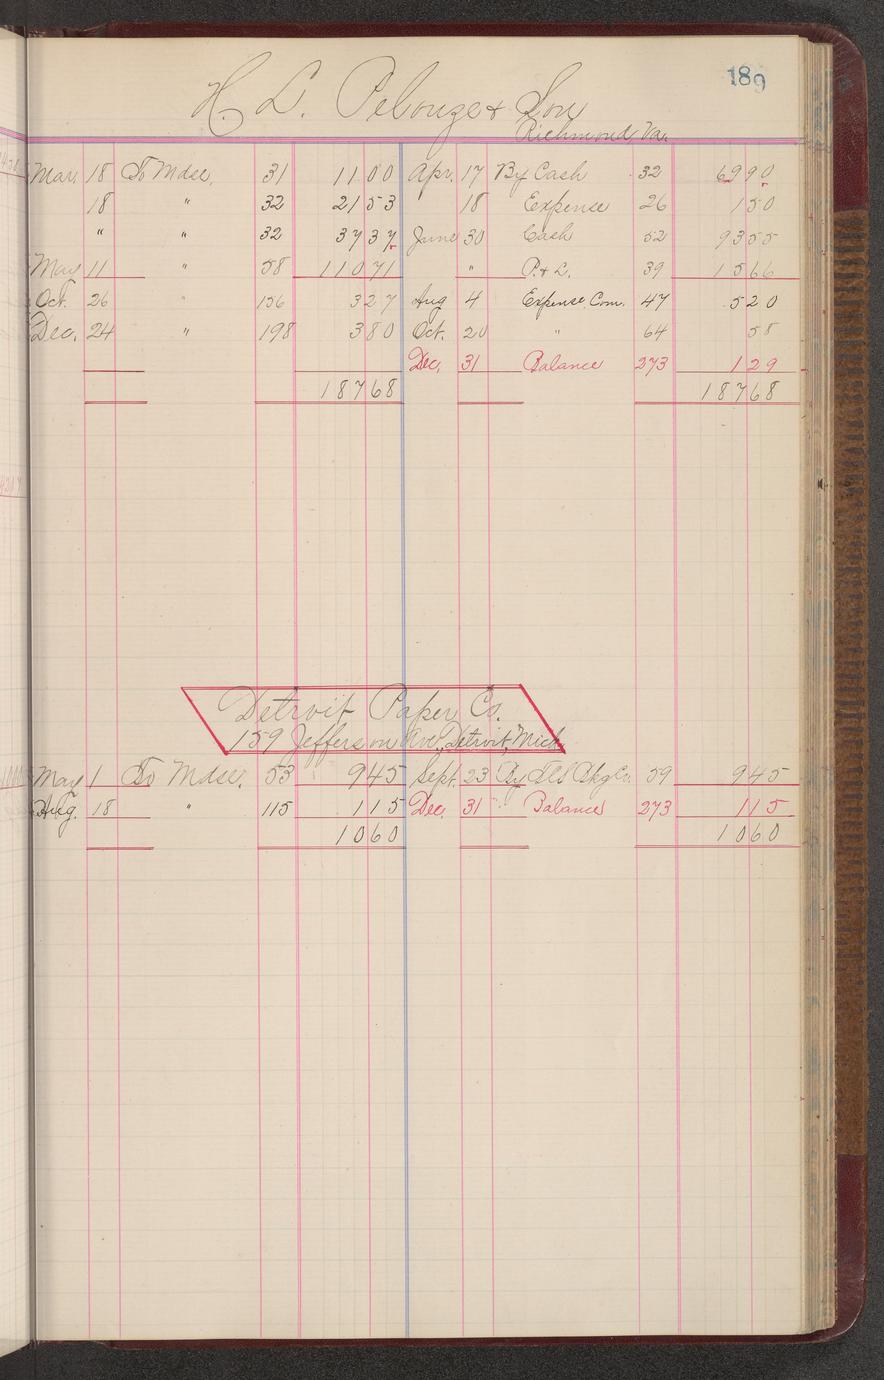 189
H. L. Pelouze & Son
Richmond Va.
Mar. 18 To Mdse. 31 1100 Apr. 17 By Cash 32 6990
18 " 32 2153 18 Expense 26 150
" " 32 3737 June 30 Cash 52 9355
May 11 " 58 11071 " P. & L. 39 1566
Oct. 26 " 156 327 Aug 4 Expense Com. 47 520
Dec. 24 " 198 380 Oct. 20 " 64 58
Dec. 31 Balance 273 129
18768 18768
Detroit Paper Co.
159 Jefferson Ave., Detroit, Mich
May 1 To Mdse. 53 945 Sept. 23 By 59 945
Aug. 18 " 115 115 Dec. 31 Balance 273 115
1060 1060